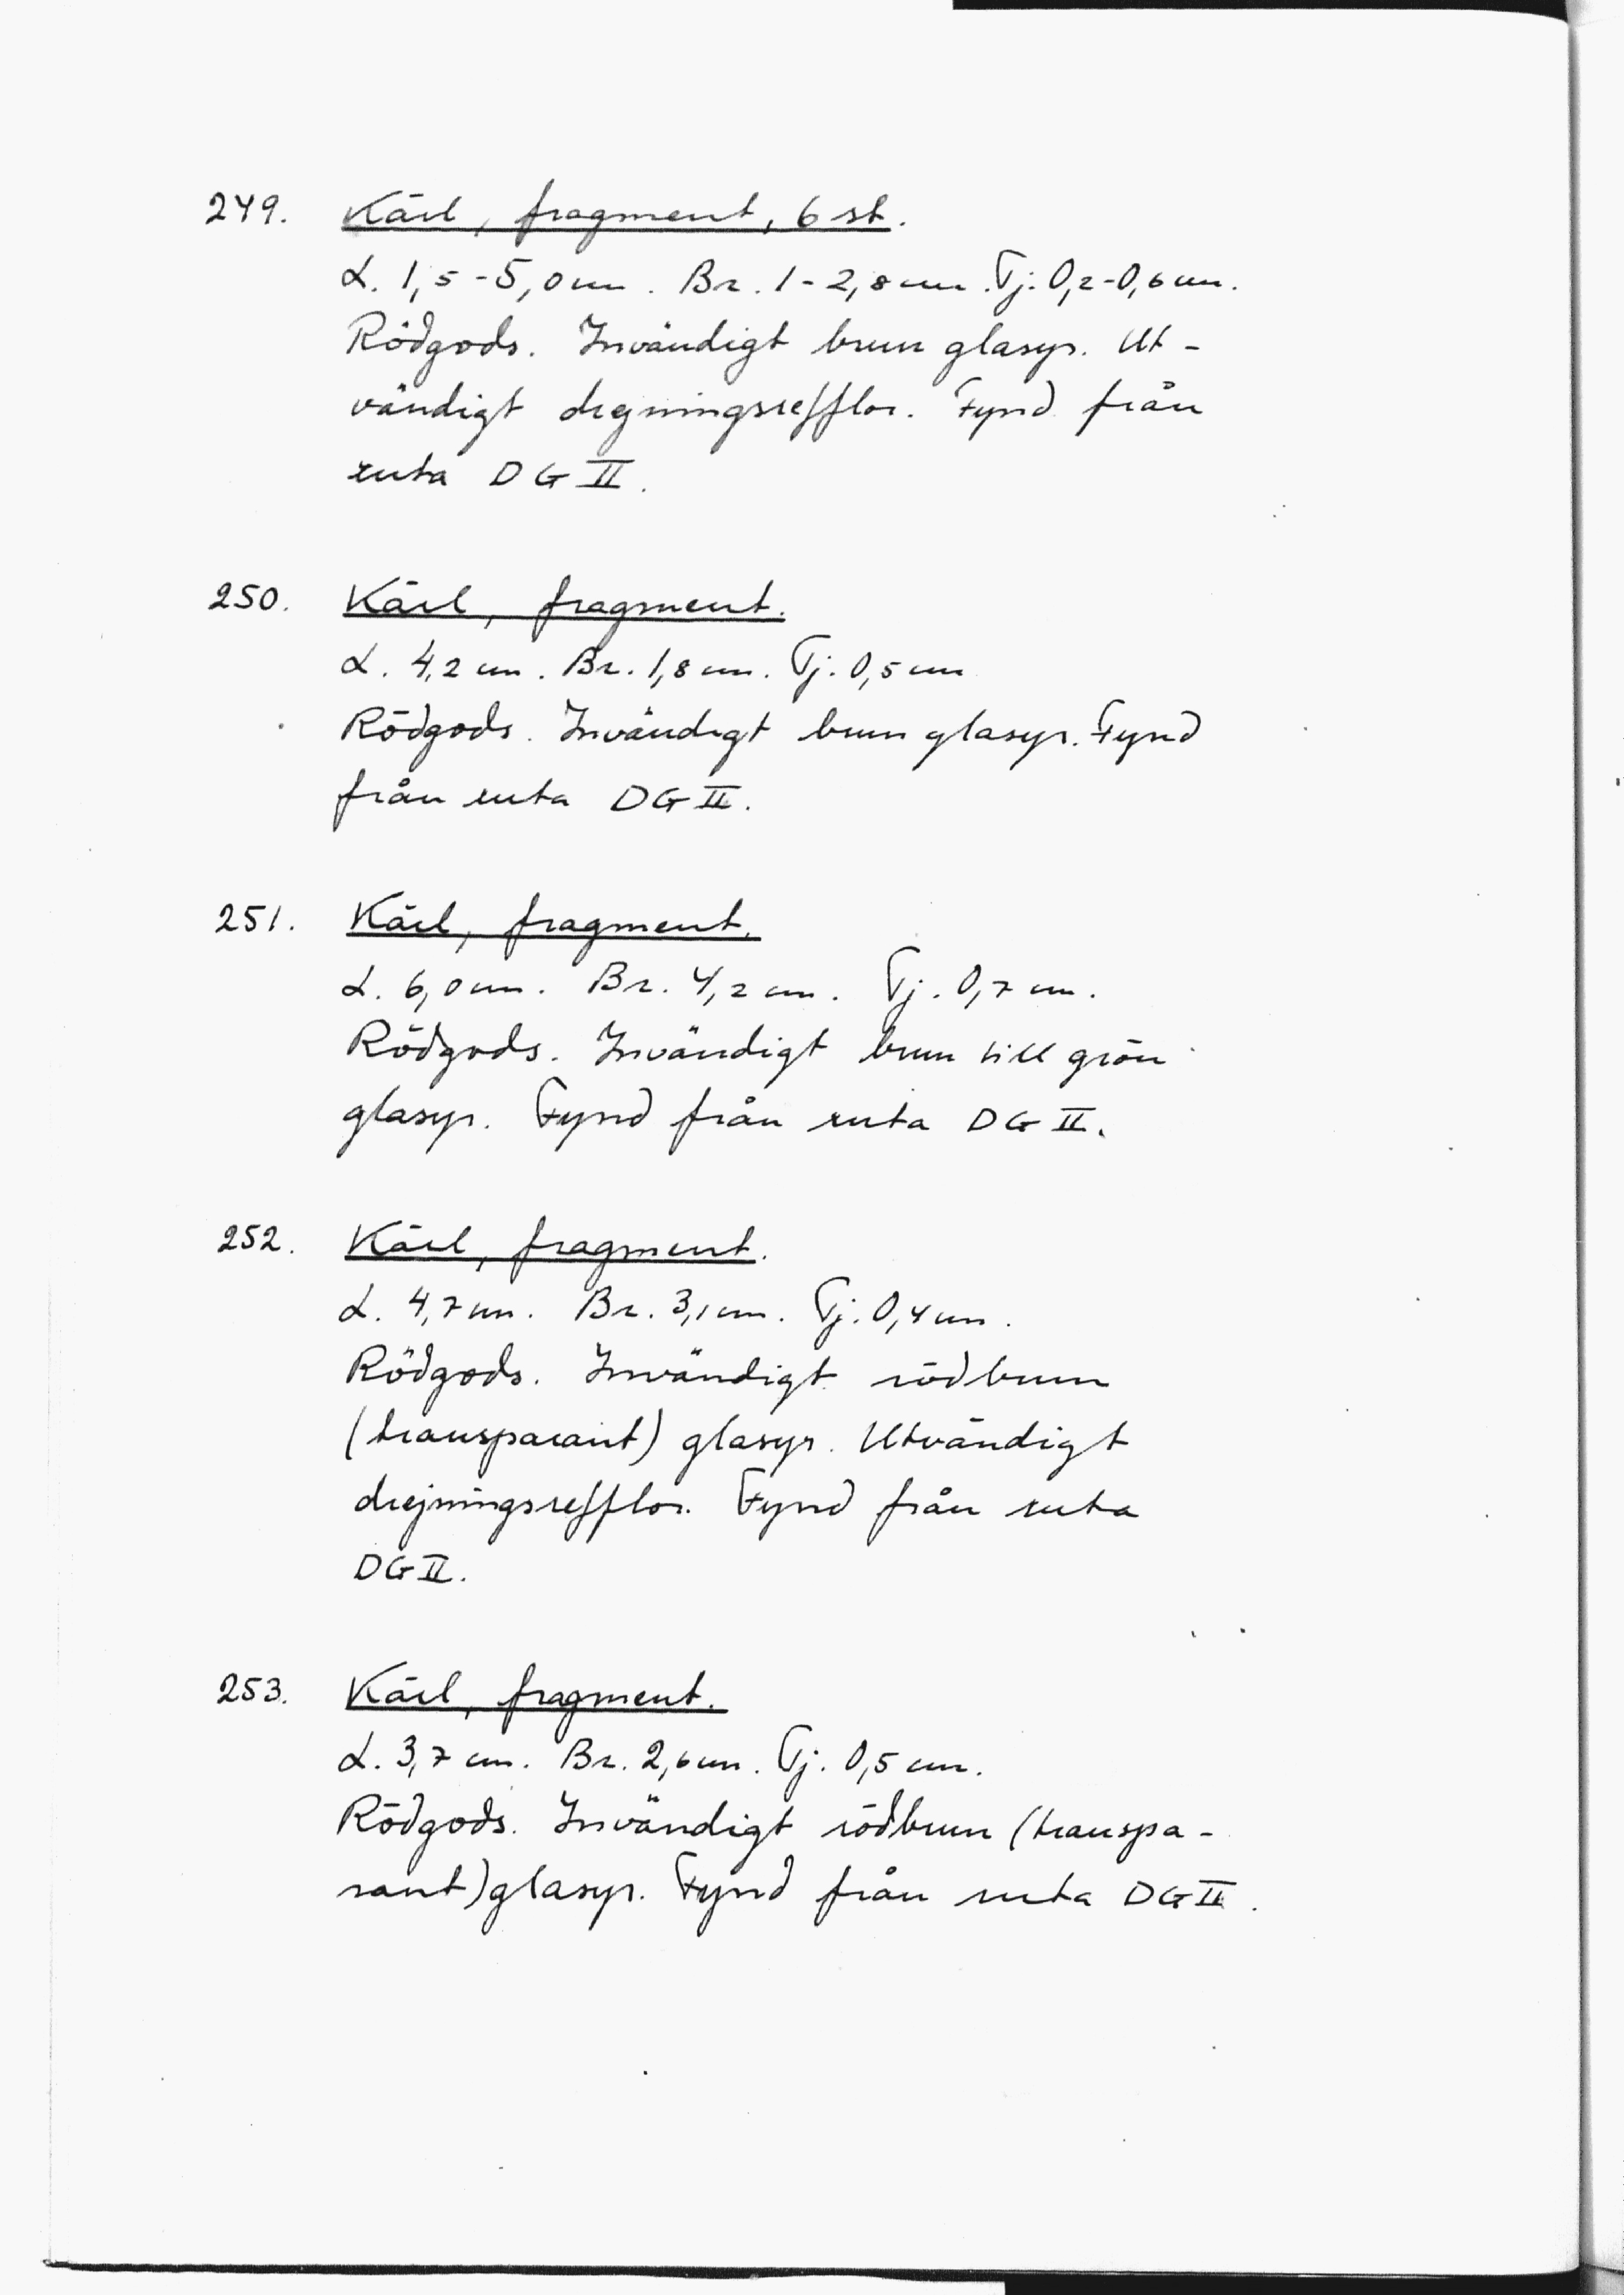 249. Kärl, fragment, 6 st.
L. 1,5-5,0 cm. Br. 1-2,8 cm. Tj. 0,2-0,6 cm.
Rödgods. Invändigt brun glasyr. Ut-
vändigt drejningsrefflor. Fynd från
ruta DG II.
250. Kärl, fragment.
L. 4,2 cm. Br. 1,8 cm. Tj. 0,5 cm
Rödgods. Invändigt brun glasyr. Fynd
från ruta DG II.
251. Kärl, fragment.
L. 6,0 cm. Br. 4,2 cm. Tj. 0,7 cm.
Rödgods. Invändigt brun till grön
glasyr. Fynd från ruta DG II.
252. Kärl, fragment.
L. 4,7 cm. Br. 3,1 cm. Tj. 0,4 cm.
Rödgods. Invändigt rödbrun
(transparant) glasyr. Utvändigt
drejningsrefflor. Fynd från ruta
DG II.
253. Kärl, fragment.
L. 3,7 cm. Br. 2,6 cm. Tj. 0,5 cm.
Rödgods. Invändigt rödbrun (transpa-
rant) glasyr. Fynd från ruta DG II.